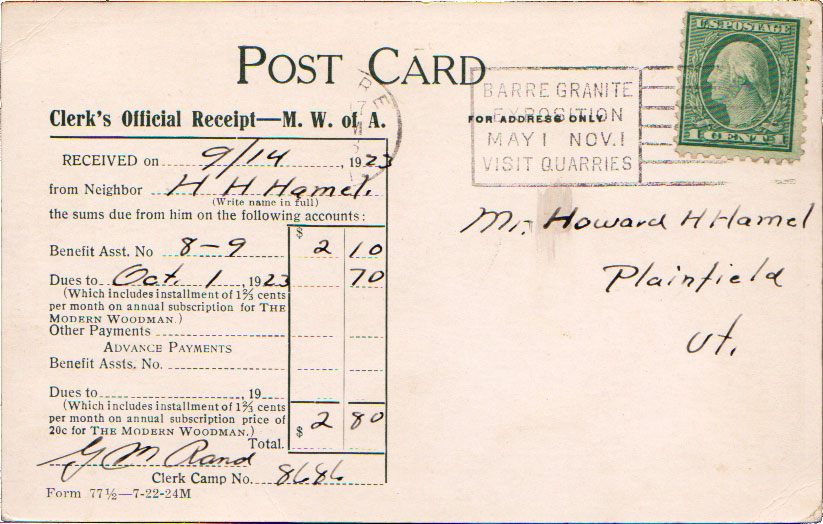 POST CARD
U.S. POSTAGE
1 CENT 1
BARRE GRANITE
EXPOSITION
MAY 1 NOV. 1
VISIT QUARRIES
FOR ADDRESS ONLY
Clerk's Official Receipt—M. W. of A.
RECEIVED on 9/14, 1923
from Neighbor H H Hamel.
(Write name in full)
the sums due from him on the following accounts:
$
Benefit Asst. No 8-9 2 10
Dues to Oct. 1, 1923 70
(Which includes installment of 1⅔ cents
per month on annual subscription for THE
MODERN WOODMAN.)
Other Payments
ADVANCE PAYMENTS
Benefit Assts. No.
Dues to, 19
(Which includes installment of 1⅔ cents
per month on annual subscription price of
20c for THE MODERN WOODMAN.)
Total. $ 2 80
G M Rand
Clerk Camp No. 8686
Form 77½—7-22-24M
Mr. Howard H Hamel
Plainfield
Vt.